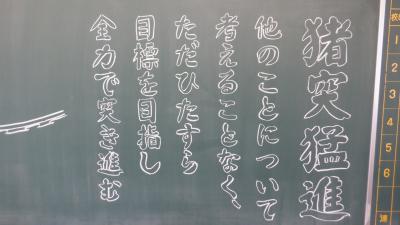 猪突猛進
他のことについて
考えることなく、
ただひたすら
目標を目指し
全力で突き進む
1
2
3
4
5
6